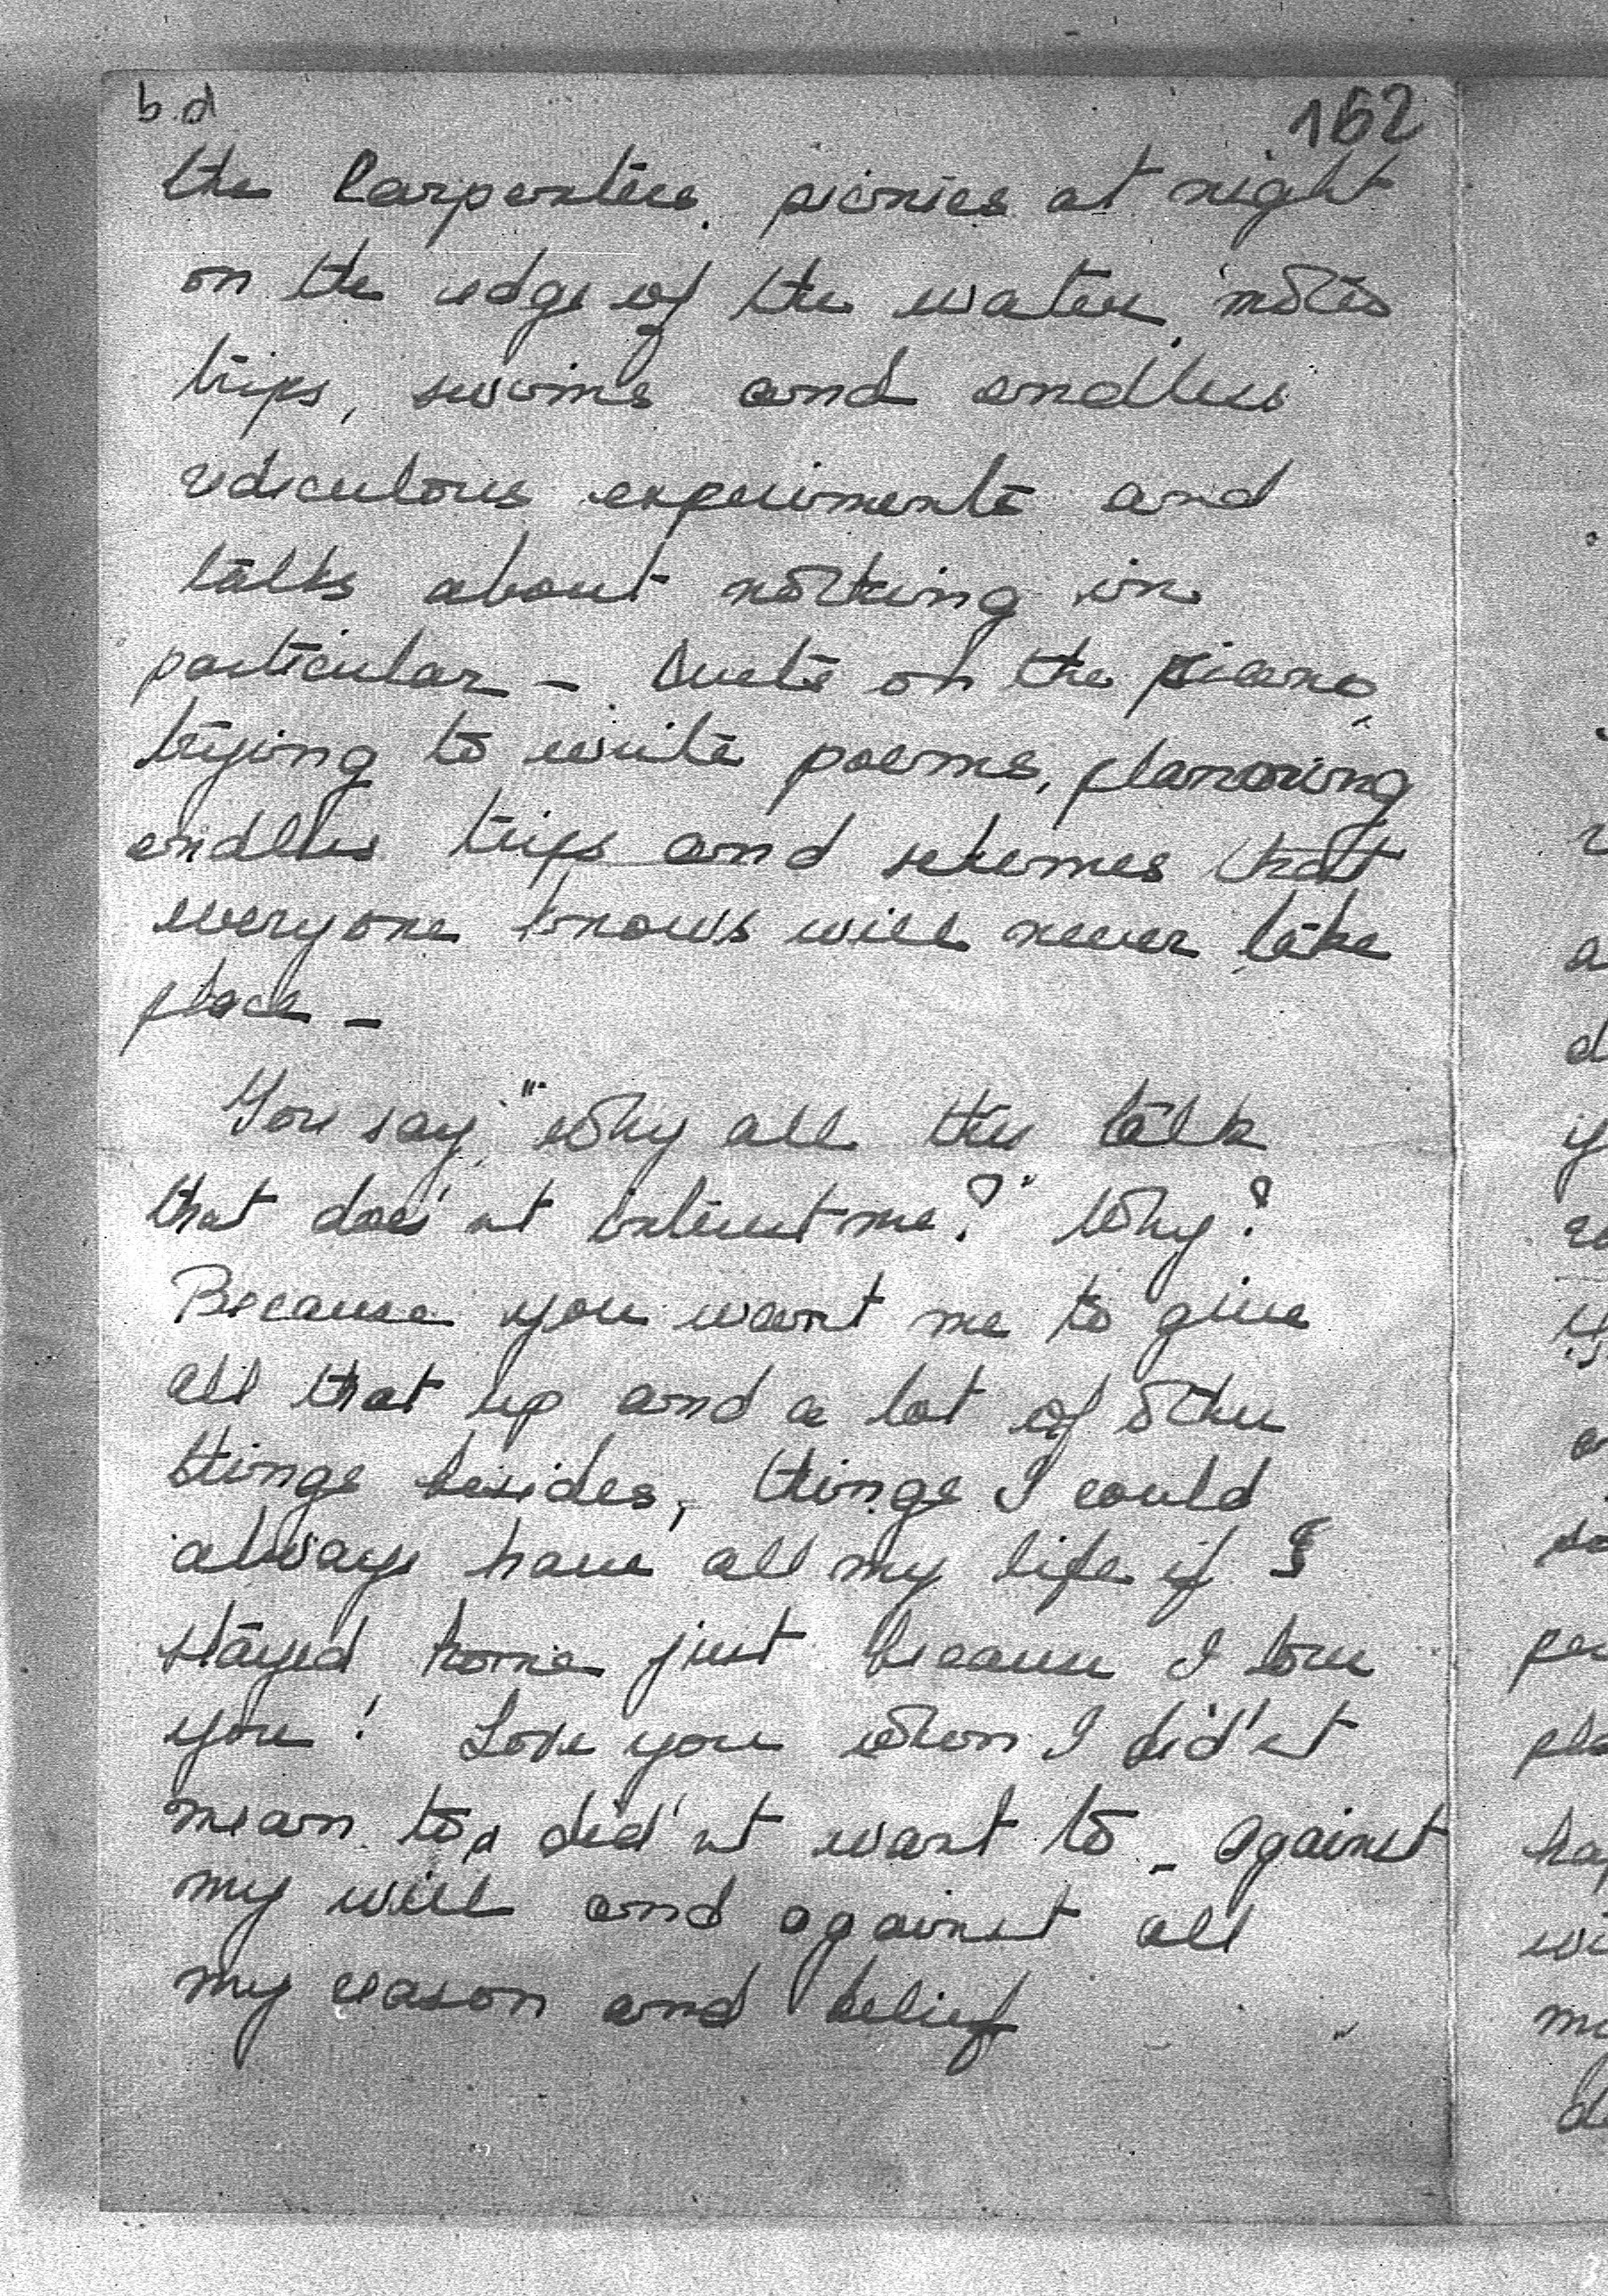 b.d
162
the Carpenters, picnics at night
on the edge of the water, motor
trips, swims and endless
rediculous experiments and
talks about nothing in
particular - Duets on the piano,
trying to write poems, planning
endless trips and schemes that
everyone knows will never take
place -
You say, "Why all this talk
that does'nt interest me?" Why?
Because you want me to give
all that up and a lot of other
things besides, things I could
always have all my life if I
stayed home just because I love
you! Love you when I did'nt
mean to, did'nt want to - against
my will and against all
my reason and belief